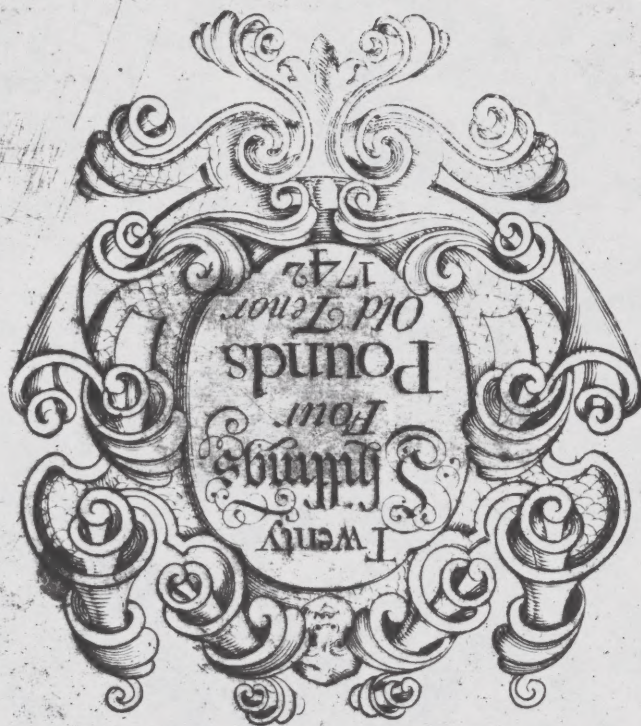 Twenty
Shillings
Four
Pounds
Old Tenor
1742